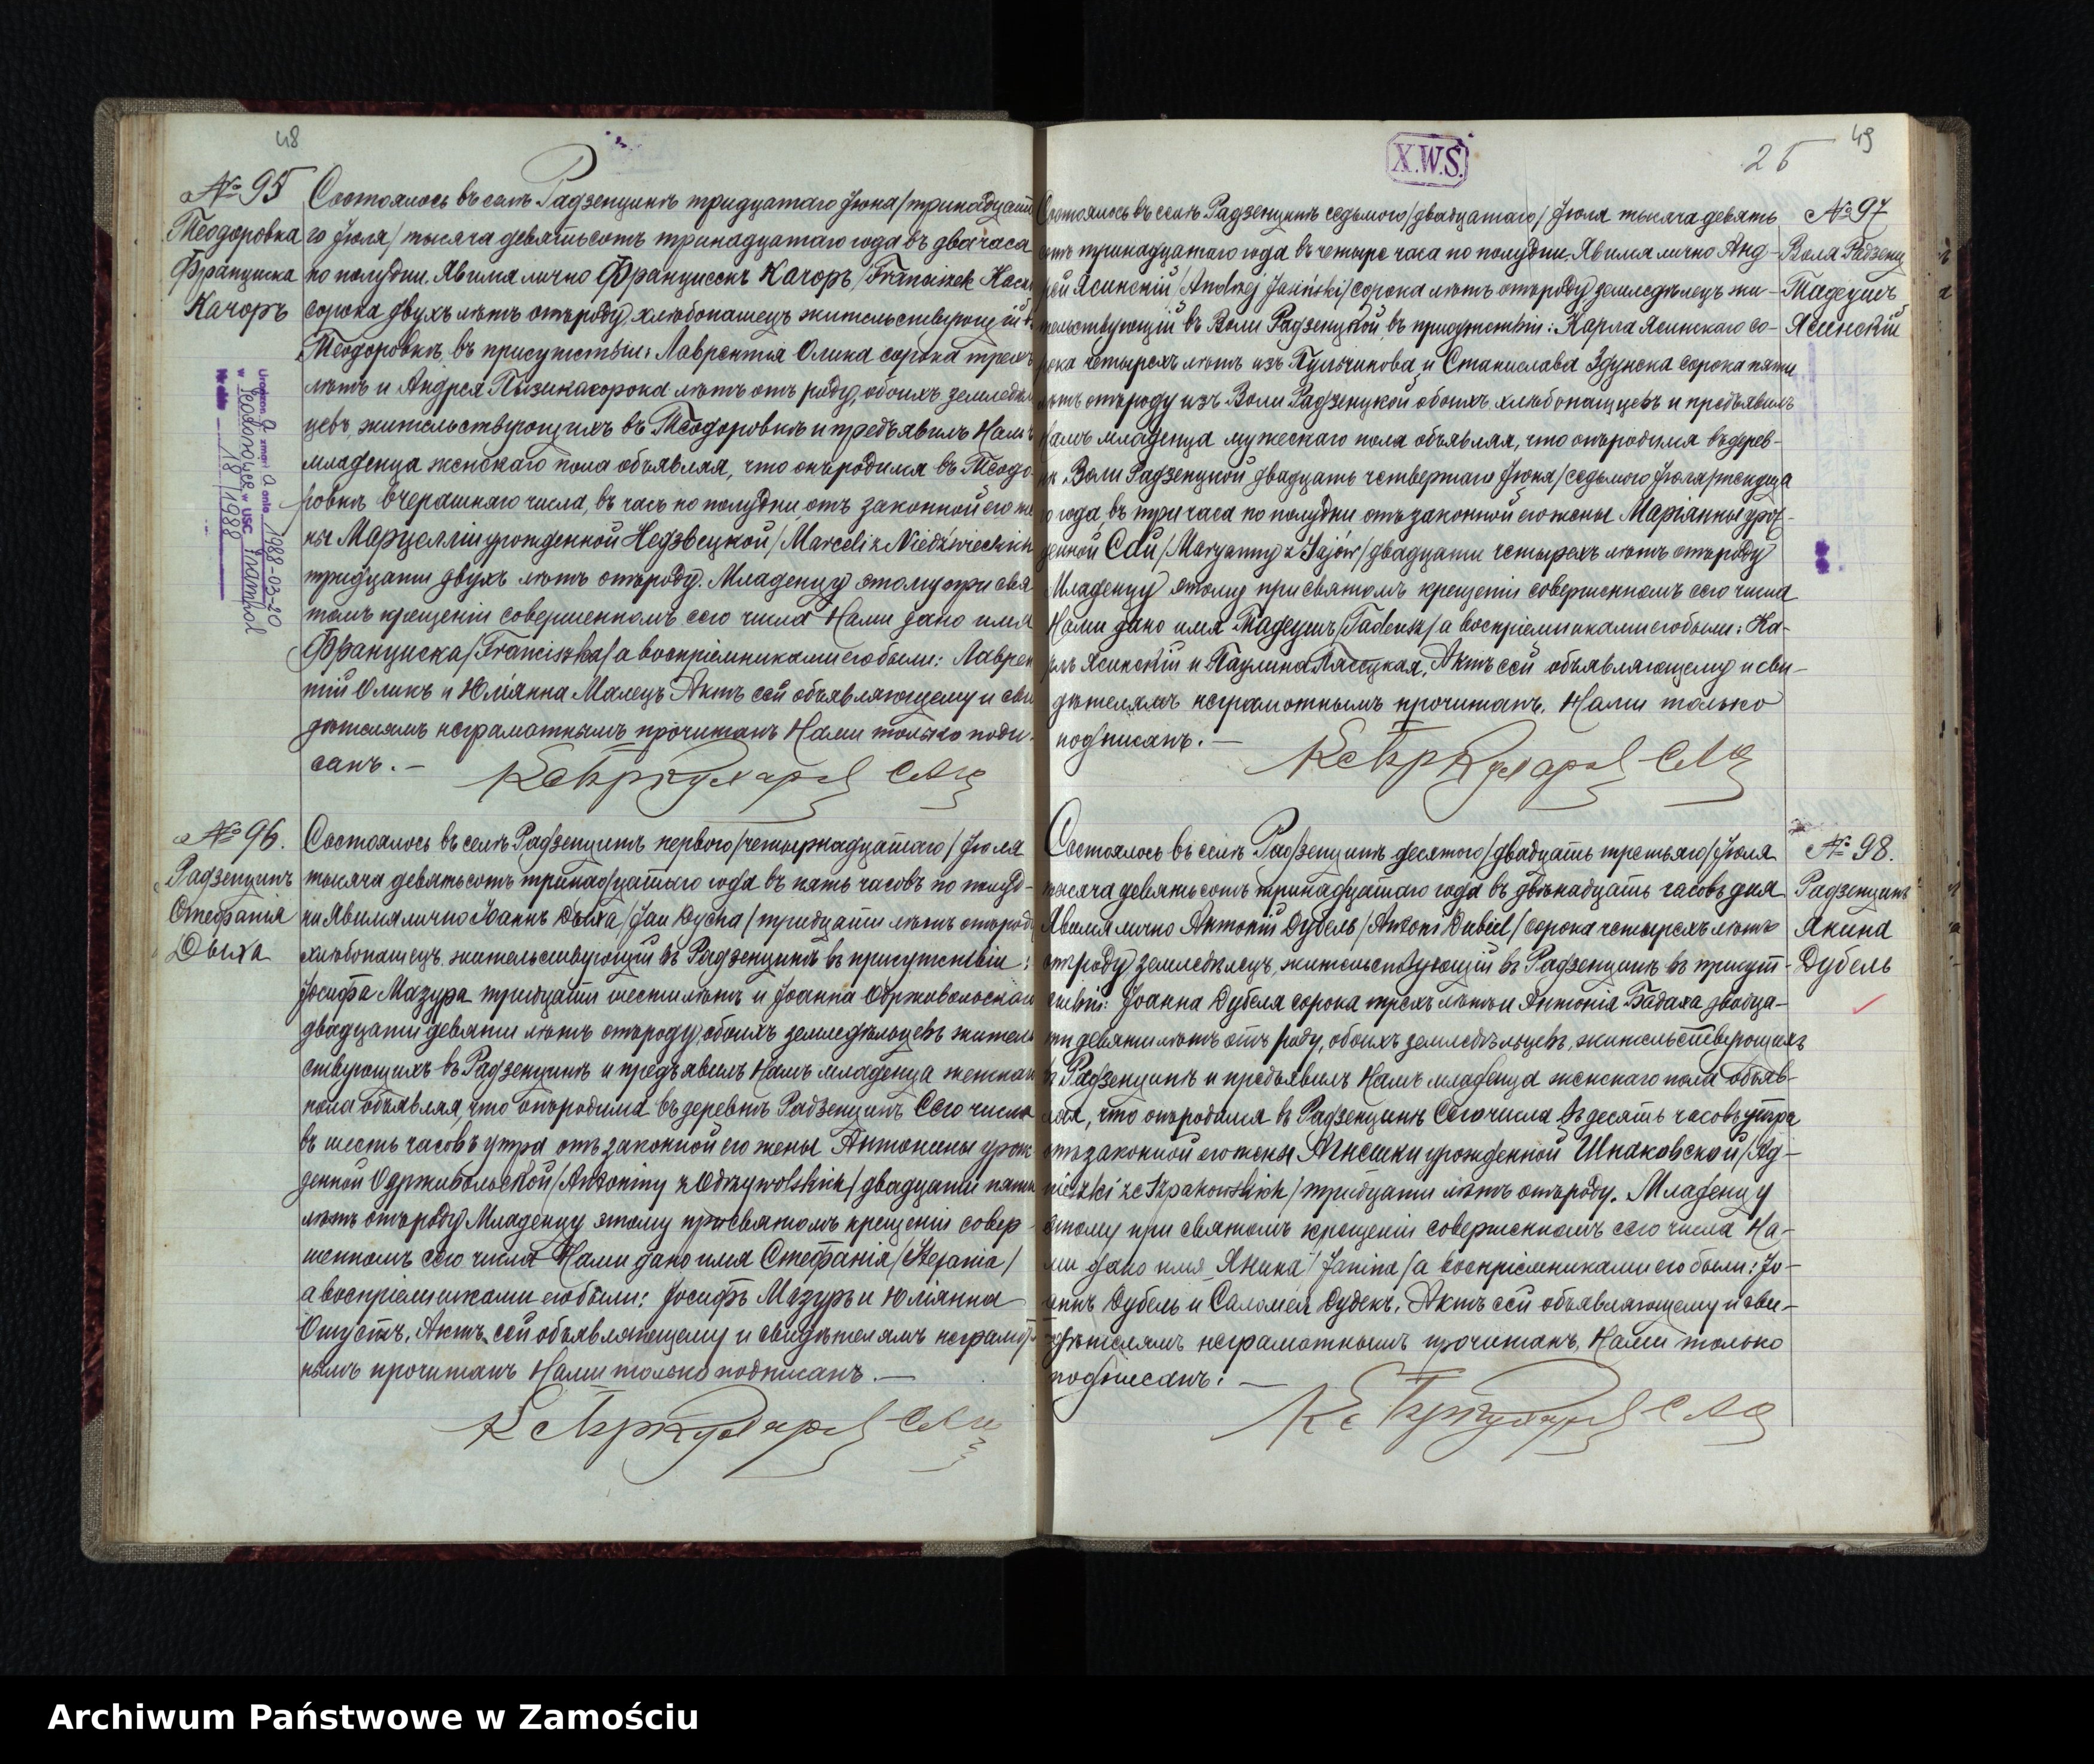 48
№ 95
Теодоровка
Франциска
Качоръ
Состоялось въ селѣ Радзенцинѣ тридцатаго Іюна/тринадцата
го Іюля/ тысяча девятьсотъ тринадцатаго года въ два часа
по полудни. Явился лично Францисекъ Качоръ, /Franciszek Kacz
сорока двухъ лѣтъ отъ роду, хлѣбопашецъ жительствующій в
Теодоровкѣ, въ присутствіи: Лаврентія Олика сорока трехъ
лѣтъ и Андрея сорока лѣтъ отъ роду, обоихъ земледѣль
цевъ, жительствующихъ въ Теодоровкѣ и предъявилъ Намъ
младенца женскаго пола объявляя, что онъ родился въ Теодо
ровкѣ вчерашняго числа, въ часъ по полудни отъ законной его же
ны Марцелліи урожденной Недзвецкой /Marceli z Niedźwieckich
тридцати двухъ лѣтъ отъ роду. Младенцу этому при свя
томъ крещеніи совершенномъ сего числа Нами дано имя
Франциска/Franciszka/ а воспріемниками его были: Лаврен
тій Оликъ и Юліянна Малецъ Актъ сей объявляющему и сви
дѣтелямъ неграмотнымъ прочитанъ Нами только подпи
санъ. —
Urodzona zmarła dnia 1988-03-20
w Teodorówce w USC Frampol
Nr aktu 18/1988
№ 96.
Радзенцинъ
Стефанія
Дыха
Состоялось въ селѣ Радзенцинѣ перваго/четырнадцатаго/ Іюля
тысяча девятьсотъ тринадцатаго года въ пять часовъ по полуд-
ни Явился лично Іоаннъ Дыха /Jan Dycha/ тридцати лѣтъ отъ роду
хлѣбопашецъ жительствующій въ Радзенцинѣ въ присутствіи:
Іосифа Мазура тридцати шести лѣтъ и Іоанна
двадцати девяти лѣтъ отъ роду, обоихъ земледѣльцевъ житель
ствующихъ въ Радзенцинѣ и предъявилъ Намъ младенца женскаго
пола объявляя, что онъ родился въ деревнѣ Радзенцинъ Сего числа
въ шесть часовъ утра отъ законной его жены Антонины урож
денной Одрживольской /Antoniny z Odrzywolskich/ двадцати пяти
лѣтъ отъ роду Младенцу этому при святомъ крещеніи совер-
шенномъ сего числа Нами дано имя Стефанія/Stefania/
а воспріемниками его были: Іосифъ Мазуръ и Юліянна
Актъ сей объявляющему и свидѣтелямъ неграмот
нымъ прочитанъ Нами только подписанъ. —
X.W.S.
25
49
№ 97
Воля Радзенц
Тадеушъ
Ясинскій
Состоялось въ селѣ Радзенцинѣ седьмого/двадцатаго/ Іюля тысяча девять
сотъ тринадцатаго года въ четыре часа по полудни. Явился лично Анд-
рей Ясинскій /Andrzej Jasiński/ сорока лѣтъ отъ роду земледѣлецъ жи-
тельствующій въ Воли Радзенцкой, въ присутствіи: Карла Ясинскаго со-
рока четырехъ лѣтъ изъ и Станислава Здунска сорока пяти
лѣтъ отъ роду изъ Воли Радзенцкой обоихъ хлѣбопашцевъ и предъявилъ
Намъ младенца мужескаго пола объявляя, что онъ родился въ дерев-
нѣ Воли Радзенцкой двадцать четвертаго Іюня/седьмого Іюля/текуща
го года въ три часа по полудни отъ законной его жены Маріанны урож-
денной Сай /Maryanny z Sajów/ двадцати четырехъ лѣтъ отъ роду
Младенцу этому при святомъ крещеніи совершенномъ сего числа
Нами дано имя Тадеушъ/Tadeusz/ а воспріемниками его были: Ка-
рлъ Ясинскій и Паулина Пясецкая. Актъ сей объявляющему и сви-
дѣтелямъ неграмотнымъ прочитанъ. Нами только
подписанъ. —
№ 98.
Радзенцинъ
Янина
Дубель
Состоялось въ селѣ Радзенцинѣ десятого/двадцать третьяго/Іюля
тысяча девятьсотъ тринадцатаго года въ двѣнадцать часовъ дня
Явился лично Антоній Дубель /Antoni Dubiel/ сорока четырехъ лѣтъ
отъ роду земледѣлецъ, жительствующій въ Радзенцинѣ въ присут-
ствіи: Іоанна Дубеля сорока трехъ лѣтъ и Антонія Бадаха двадца-
ти девяти лѣтъ отъ роду, обоихъ земледѣльцевъ, жительствующихъ
въ Радзенцинѣ и предъявилъ Намъ младенца женскаго пола объяв-
ляя, что онъ родился въ Радзенцинѣ Сего числа въ десять часовъ утра
отъ законной его жены Агнешки урожденной Шпаковской /Ag-
nieszki ze Szpakowskich/ тридцати лѣтъ отъ роду. Младенцу
этому при святомъ крещеніи совершенномъ сего числа На-
ми дано имя Янина /Janina/ а воспріемниками его были: Іо-
аннъ Дубель и Саломея Дудекъ. Актъ сей объявляющему и сви-
дѣтелямъ неграмотнымъ прочитанъ, Нами только
подписанъ: —
Archiwum Państwowe w Zamościu